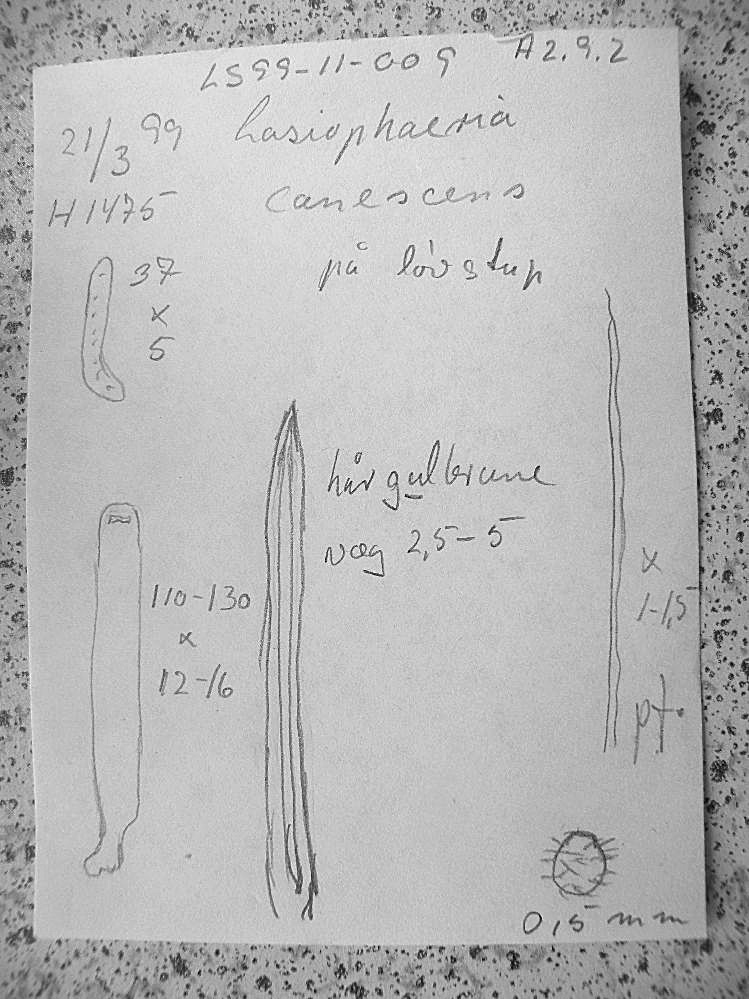 LS99-11-009 A2.9.2
21/3 99 Lasiophaeria
H1475 canescens
på løvstup
37
x
5
hår gulbrune
væg 2,5-5
110-130
x
12-16
x
1-1,5
pf.
0,5 mm